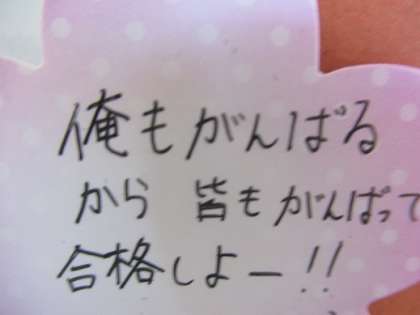 俺もがんばる
から 皆もがんばって
合格しよー!!